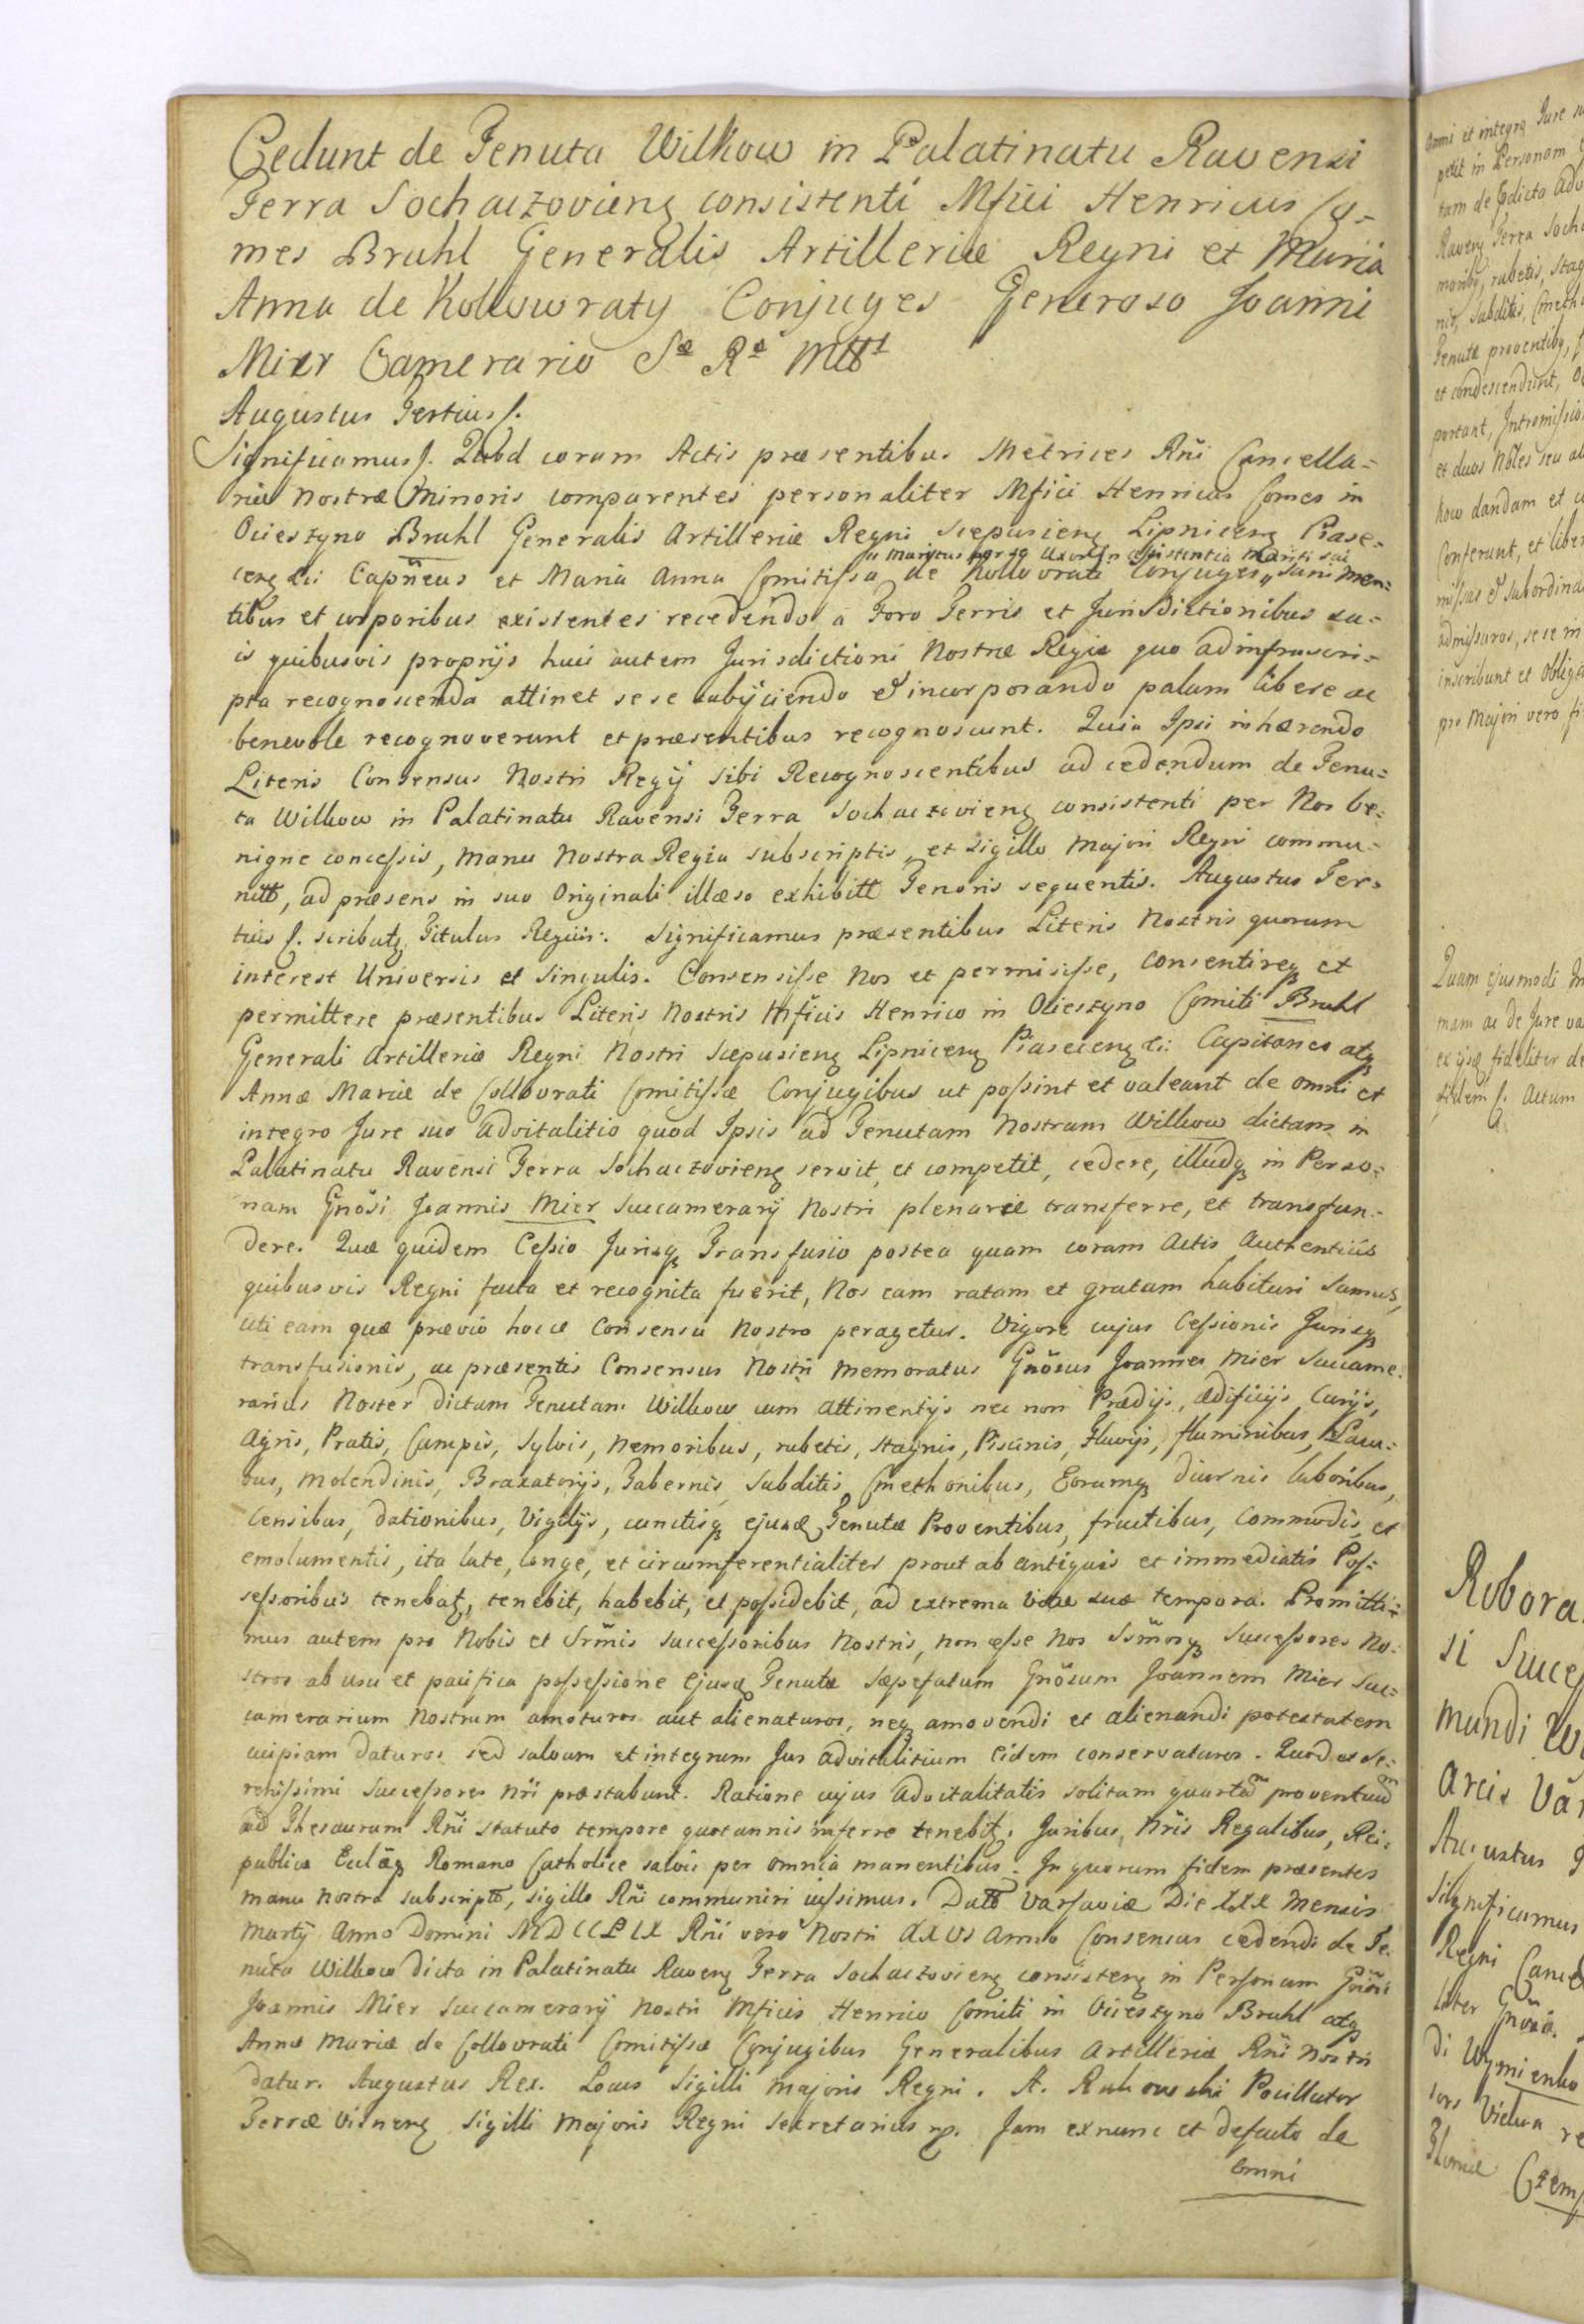 Cedunt de Tenuta Wilkow in Palatinatu Ravensi
Terra Sochaczovieng consistenti Mfici Henricus Co=
mes Bruhl Generalis Artilleriæ Regni et Maria
Anna de Kollowraty Conjuges Generoso Joanni
Mier Camerario Sæ Ræ Mttt
Augustus Tertius f.
Significamus f. Quod coram Actis præsentibus Metrices Rñi Cancella=
riæ Nostræ Minoris comparentes personaliter Mfici Henricus Comes in
Ociestyno Bruhl Generalis Artilleriæ Regni Scepusieng Lipniceng Piase=
ceng &c: Capñeus et Maria Anna Comitissa de Kollovrati Conjuges, sani men=
ac Maritus porro Uxor in assistentia Mariti sui
tibus et corporibus existentes recedendo a Foro Terris et Jurisdictionibus su=
is quibusvis proprijs huic autem Jurisdictioni Nostræ Regiæ quo ad infrascri=
pta recognoscenda attinet sese subijciendo & incorporando palam libere ac
benevole recognoverunt et præsentibus recognoscunt. Quia Ipsi inhærendo
Literis Consensus Nostri Regij sibi Recognoscentibus ad cedendum de Tenu=
ta Wilkow in Palatinatu Ravensi Terra Sochaczovieng consistenti per Nos be=
nigne concessis, manu Nostra Regia subscriptis, et sigillo Majori Regni commu=
nitt, ad præsens in suo Originali illæso exhibitt Tenoris sequentis. Augustus Ter=
tius f. scribatz Titulus Regius:. Significamus præsentibus Literis Nostris quorum
interest Universis et Singulis. Consensisse Nos et permisisse, consentireq et
permittere præsentibus Literis Nostris Mficis Henrico in Ociestyno Comiti Bruhl
Generali Artilleriæ Regni Nostri Scepusieng Lipniceng Piaseceng &c: Capitaneo atq
Annæ Mariæ de Collovrati Comitissæ Conjugibus ut possint et valeant de omni et
integro Jure suo advitalitio quod Ipsis ad Tenutam Nostram Wilkow dictam in
Palatinatu Ravensi Terra Sochaczovieng servit, et competit, cedere, illudq in Perso=
nam Gnõsi Joannis Mier Succamerarij Nostri plenarie transferre, et transfun=
dere. Quæ quidem Cessio Jurisq Transfusio postea quam coram Actis Authenticis
quibusvis Regni facta et recognita fuerit, Nos eam ratam et gratam habituri sumus,
uti eam quæ prævio hocce Consensu Nostro peragetur. Vigore cujus Cessionis Jurisq
transfusionis, ac præsentis Consensus Nostri memoratus Gnõsus Joannes Mier Succame=
rarius Noster dictam Tenutam Wilkow cum attinentijs nec non Prædijs, ædificijs, Curijs,
Agris, Pratis, Campis, Sylvis, Nemoribus, rubetis, stagnis, Piscinis, Fluvijs, fluminibus, Lacu=
bus, Molendinis, Braxatorijs, Tabernis, Subditis, Cmethonibus, Eorumq diurnis laboribus,
Censibus, dationibus, Vigilijs, cunctisq ejusd Tenutæ Proventibus, fructibus, Commodis, et
emolumentis, ita late, longe, et circumferentialiter prout ab antiquis et immediatis Pos=
sessoribus tenebatz, tenebit, habebit, et possidebit, ad extrema vitæ suæ tempora. Promitti=
mus autem pro Nobis et Srm̃is Successoribus Nostris, non esse Nos Ssm̃osq Successores No=
stros ab usu et pacifica possessione Ejusd Tenutæ sæpefatum Gnõsum Joannem Mier Suc=
camerarium Nostrum amoturos aut alienaturos, neq amovendi et alienandi potestatem
cuipiam daturos, sed salvum et integrum Jus advitalitium Eidem conservaturos. Quod et Se=
renissimi Successores Nñi præstabunt. Ratione cujus advitalitatis solitam quartam proventuum
ad Thesaurum Rñi statuto tempore quotannis inferre tenebitz. Juribus, Nñis Regalibus, Rei=
publicæ Eclãq Romano Catholicæ salvis per omnia manentibus. In quorum fidem præsentes
manu Nostra subscriptt, sigillo Rñi communiri jussimus. Datt Varsaviæ Die XXX Mensis
Martij Anno Domini MDCCLIX Rñi vero Nostri XXVI Anno Consensus cedendi de Te=
nuta Wilkow dicta in Palatinatu Raveng Terra Sochaczovieng consisteng in Personam Gnõsi
Joannis Mier Succamerarij Nostri Mficis Henrico Comiti in Ociestyno Bruhl atq
Annæ Mariæ de Collovrati Comitissæ Conjugibus Generalibus Artilleriæ Rñi Nostri
datur. Augustus Rex. Locus Sigilli Majoris Regni. A. Rukowski Pocillator
Terræ Visneng Sigilli Majoris Regni Secretarius mp. Jam exnunc et defacto de
omni